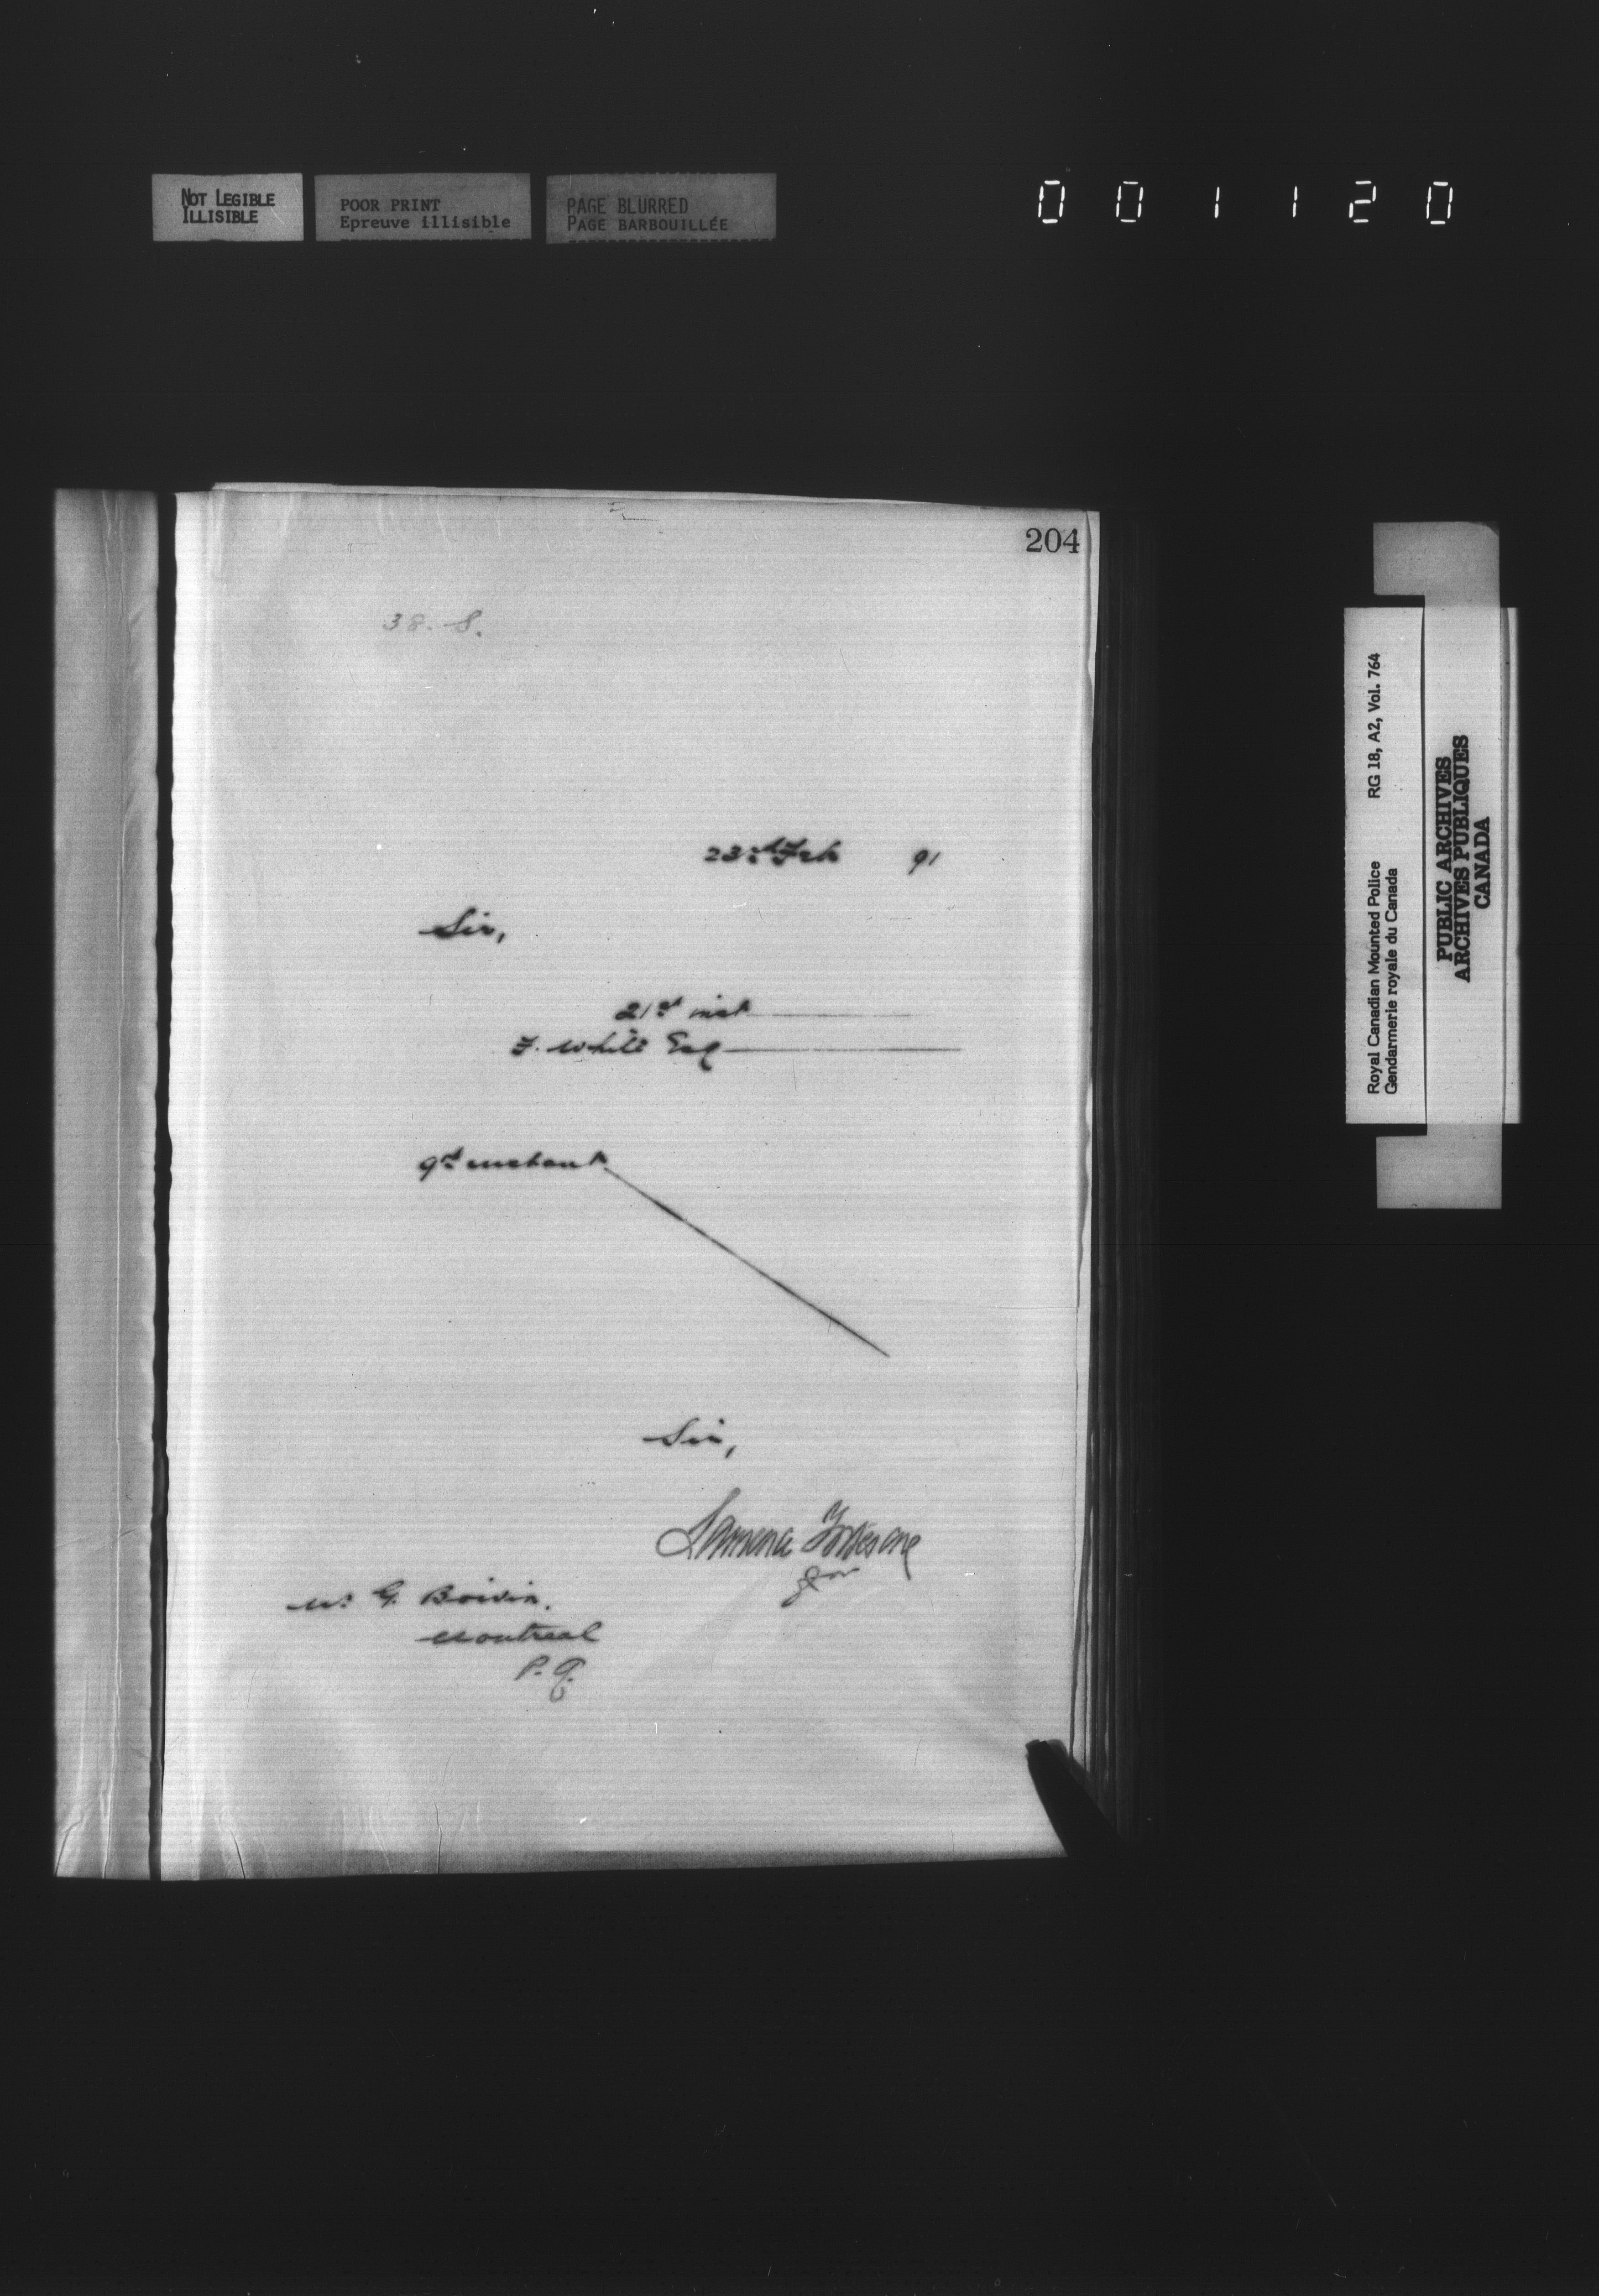 NOT LEGIBLE
ILLISIBLE
POOR PRINT
Epreuve illisible
PAGE BLURRED
PAGE BARBOUILLÉE
001120
204
38. S.
23rd Feb 91
Sir,
21st inst
F. White Esq
Sir,
for
Mr. G. Boivin.
Montreal
P.Q.
Royal Canadian Mounted Police RG 18, A2, Vol. 764
Gendarmerie royale du Canada
PUBLIC ARCHIVES
ARCHIVES PUBLIQUES
CANADA